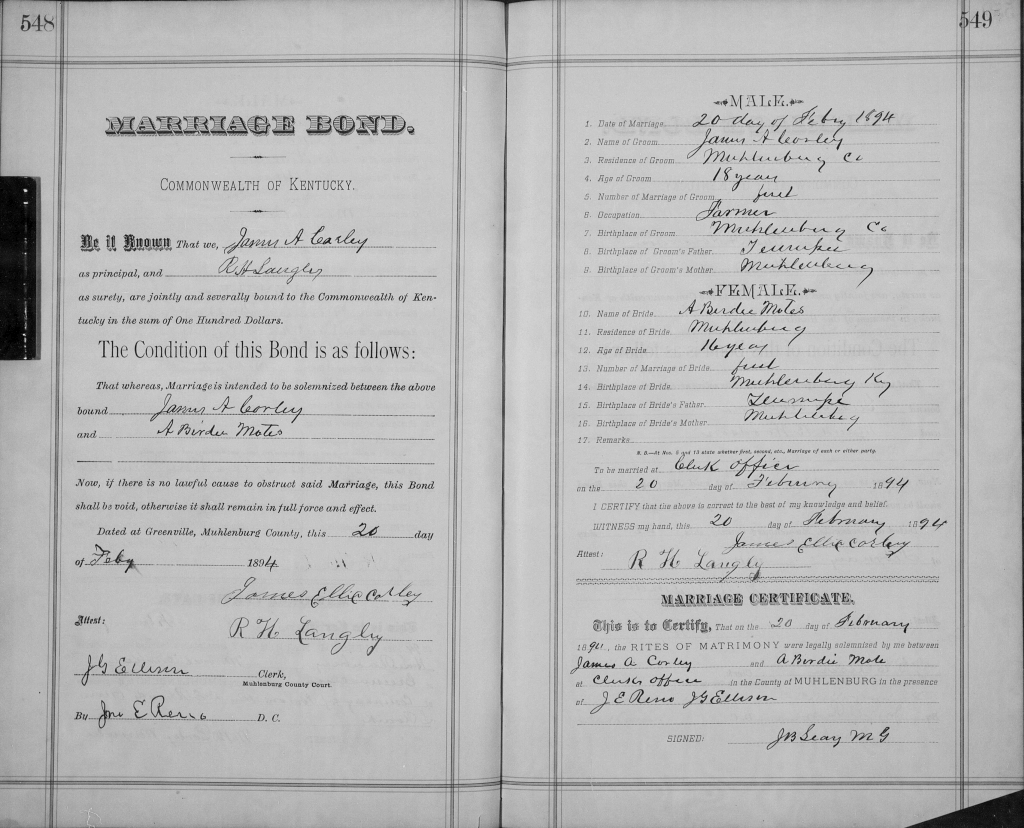 548
MARRIAGE BOND.
COMMONWEALTH OF KENTUCKY.
Be it Known That we, James A Corley
as principal, and R H Langley
as surety, are jointly and severally bound to the Commonwealth of Ken-
tucky in the sum of One Hundred Dollars.
The Condition of this Bond is as follows:
That whereas, Marriage is intended to be solemnized between the above
bound James A Corley
and A Birdie Motes
Now, if there is no lawful cause to obstruct said Marriage, this Bond
shall be void, otherwise it shall remain in full force and effect.
Dated at Greenville, Muhlenburg County, this 20 day
of Feby 1894
James Ellic Corley
Attest:
R H Langley
J G Ellison Clerk,
Muhlenburg County Court.
By Jno E Reno D. C.
549
MALE.
1. Date of Marriage. 20 day of Febry 1894
2. Name of Groom. James A Corley
3. Residence of Groom. Muhlenburg Co
4. Age of Groom 18 year
5. Number of Marriage of Groom first
6. Occupation. Farmer
7. Birthplace of Groom. Muhlenburg Co
8. Birthplace of Groom's Father. Tennessee
9. Birthplace of Groom's Mother. Muhlenburg
FEMALE.
10. Name of Bride. A Birdie Motes
11. Residence of Bride. Muhlenburg
12. Age of Bride. 16 year
13. Number of Marriage of Bride. first
14. Birthplace of Bride. Muhlenburg Ky
15. Birthplace of Bride's Father. Tennessee
16. Birthplace of Bride's Mother. Muhlenburg
17. Remarks
N. B.—At Nos. 5 and 13 state whether first, second, etc., Marriage of each or either party.
To be married at Clerk office
on the 20 day of February 1894
I CERTIFY that the above is correct to the best of my knowledge and belief.
WITNESS my hand, this 20 day of February 1894
James Ellic Corley
Attest: R H Langley
MARRIAGE CERTIFICATE.
This is to Certify, That on the 20 day of February
1894, the RITES OF MATRIMONY were legally solemnized by me between
James A Corley and A Birdie Mote
at Clerks office in the County of MUHLENBURG in the presence
of J E Reno J G Ellison
SIGNED: J B Leary M G